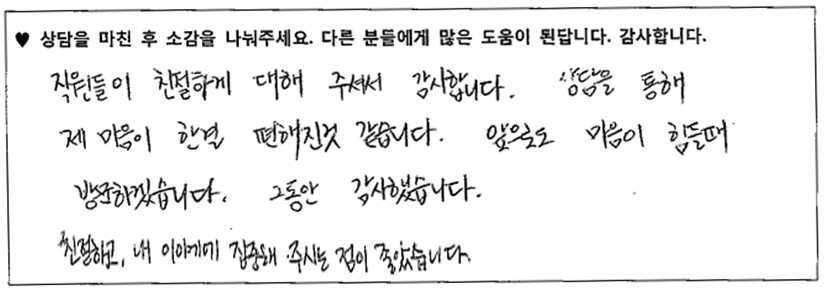 ♥ 상담을 마친 후 소감을 나눠주세요. 다른 분들에게 많은 도움이 된답니다. 감사합니다.
직원들이 친절하게 대해 주셔서 감사합니다. 상담을 통해
제 마음이 한결 편해진것 같습니다. 앞으로도 마음이 힘들때
방문하겠습니다. 그동안 감사했습니다.
친절하고, 내 이야기에 집중해 주시는 점이 좋았습니다.